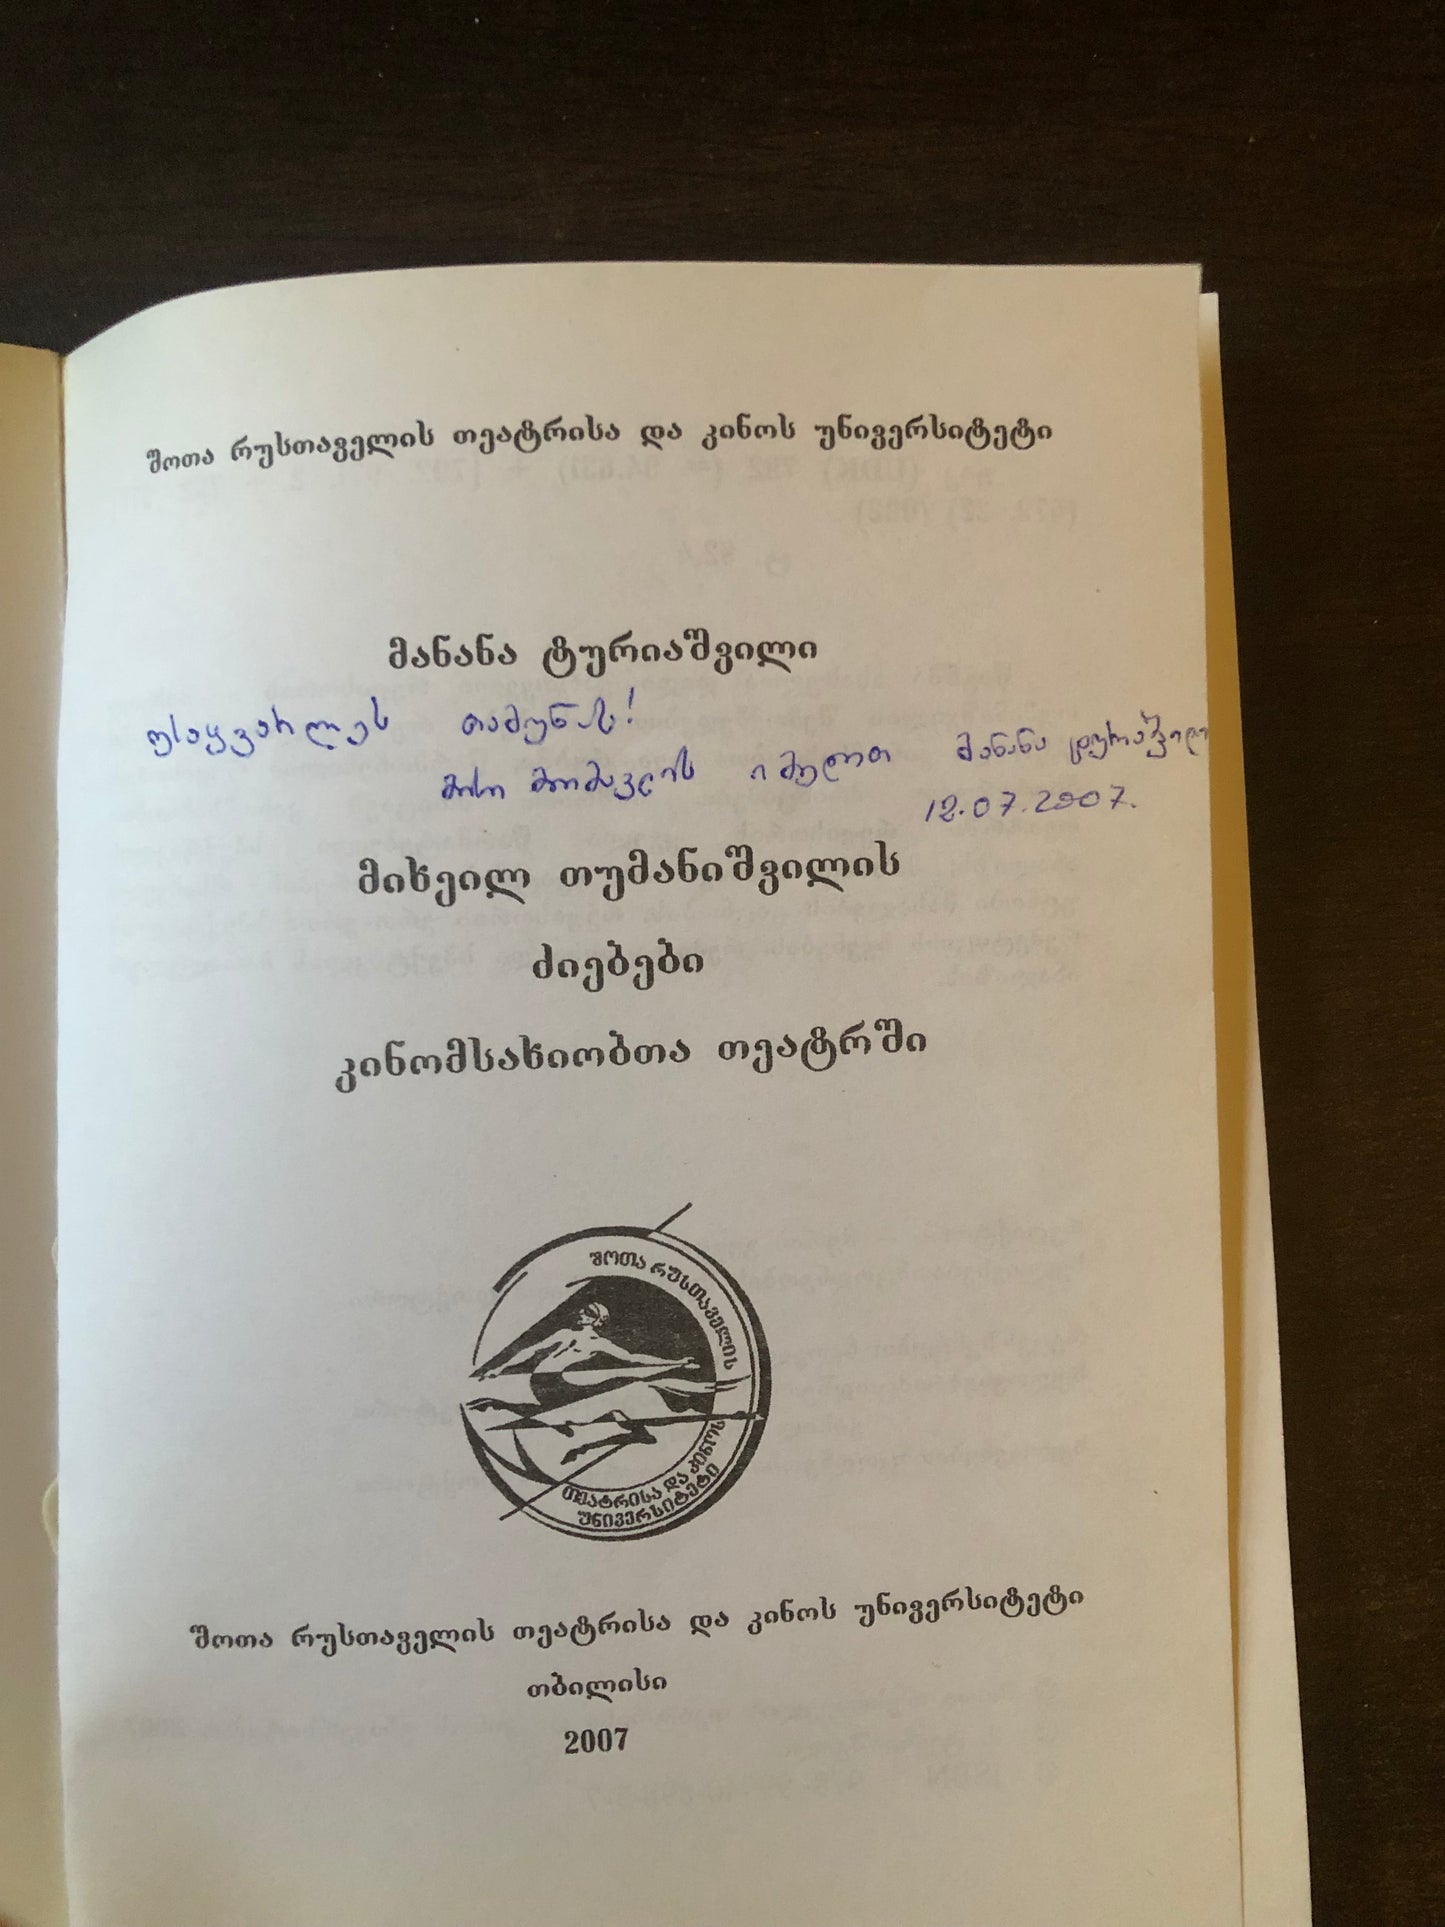 შოთა რუსთაველის თეატრისა და კინოს უნივერსიტეტი
მანანა ტურიაშვილი
უსაყვარლეს თამუნას!
მისი მომავლის იმედით მანანა ტურიაშვილი
12.07.2007.
მიხეილ თუმანიშვილის
ძიებები
კინომსახიობთა თეატრში
შოთა რუსთაველის
თეატრისა და კინოს
უნივერსიტეტი
შოთა რუსთაველის თეატრისა და კინოს უნივერსიტეტი
თბილისი
2007